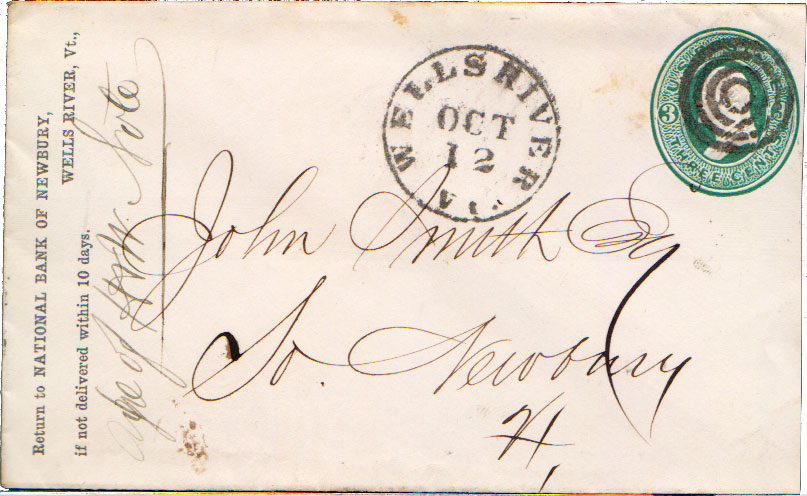 Return to NATIONAL BANK OF NEWBURY,
WELLS RIVER, Vt.,
if not delivered within 10 days.
Note
WELLS RIVER
OCT
12
VT.
U.S. POSTAGE
3
THREE CENTS
John Smith Esq
So. Newbury
Vt,